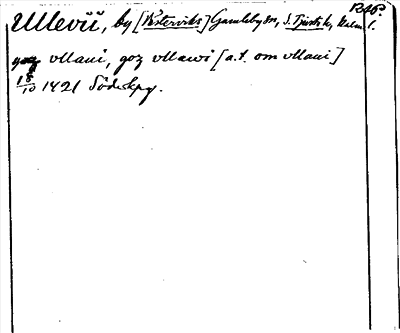 RAp.
Ullevi, by [Västerviks] Gamleby sn, S. Tjusts hd, Kalm. l.
vllaui, goz vllawi [a.t. om vllaui]
18/10 1421 Söderkpg.